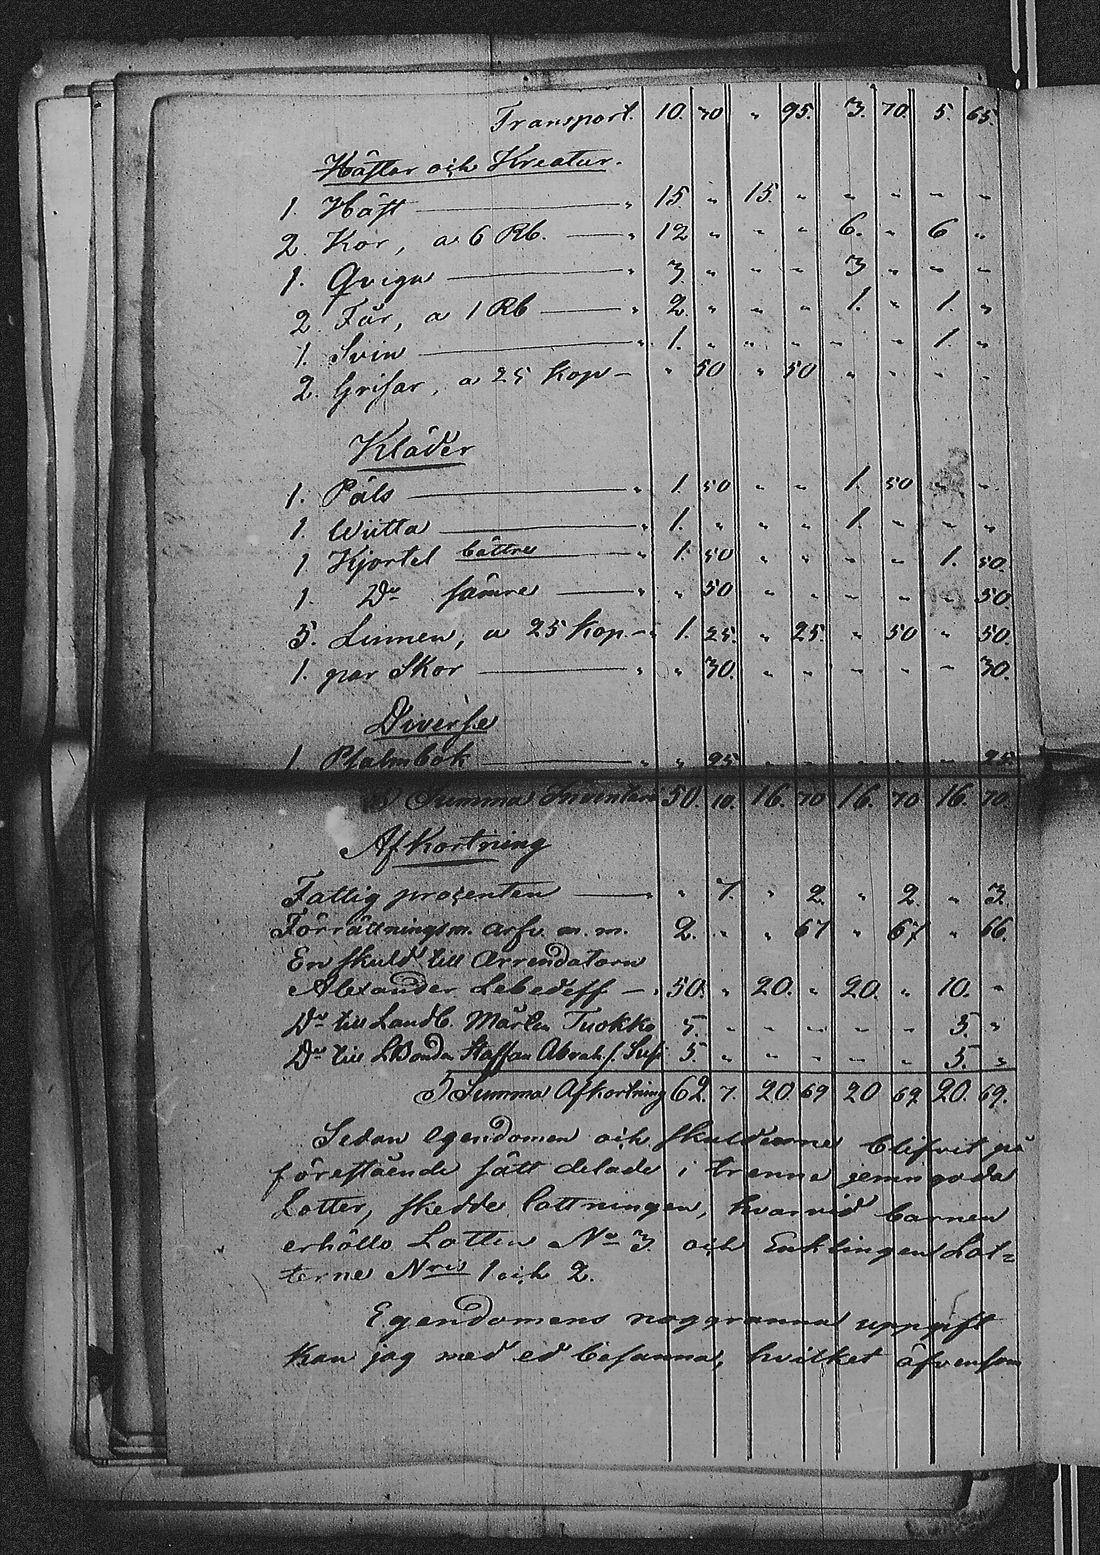 Transport. 10. 30 „ 95. 3. 70. 5. 65.
Hästar och Kreatur.
1. Häst — „ 15 „ 15. „ „ „ „ „
2. Kor, a 6 Rb. — „ 12 „ „ „ 6. „ 6 „
1. Qviga — „ 3 „ „ „ 3 „ „ „
2. Får, a 1 Rb — „ 2. „ „ „ 1. „ 1. „
1. Svin — „ 1. „ „ „ „ „ 1. „
2. Grisar, a 25 Kop — „ 50 „ 50 „ „ „ „
Kläder
1. Päls — „ 1. 50 „ „ 1. 50 „ „
1. Wutta — „ 1. „ „ „ 1. „ „ „
1 Kjortel bättre — „ 1. 50 „ „ „ „ 1. 50.
1. Do sämre — „ „ 50 „ „ „ „ „ 50.
5. Linnen, a 25 Kop — „ 1. 25. „ 25. „ 50 „ 50.
1. par Skor — „ „ 30. „ „ „ „ „ 30.
Diverse
1 Psalmbok — „ „ 25. „ „ „ „ „ 25
S Summa Inventarii 50. 10. 16. 70 16. 70 16. 70.
Afkortning
Fattig procenten — „ „ 7. „ 2. „ 2. „ 3.
Förrättningsm. arfv. m. m. 2. „ „ 67 „ 67 „ 66.
En skuld till Arrendatorn
Alexander Lebedeff — „ 50. „ 20. „ 20. „ 10. „
Do till Landb. Mårten Tuokko 5. „ „ „ „ „ 5. „
Do till LBonden Staffan Abrah. s. 5. „ „ „ „ „ 5. „
S Summa Afkortning 62. 7. 20. 69 20 69 20. 69.
Sedan egendomen och skulderne blifvit på
förestående sätt delade i trenne jemngoda
Lotter, skedde lottningen, hvarvid barnen
erhöllo Lotten No 3. och Enklingen Lot=
terne Nris 1 och 2.
Egendomens noggranna uppgift
kan jag med ed besanna, hvilket äfvensom